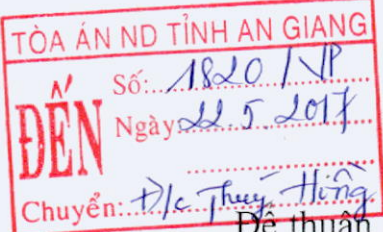 TÒA ÁN ND TỈNH AN GIANG
ĐẾN
Số: 1820 / VP
Ngày: 22.5.2017
Chuyển: Đ/c Thuý Hồng
Để thuận